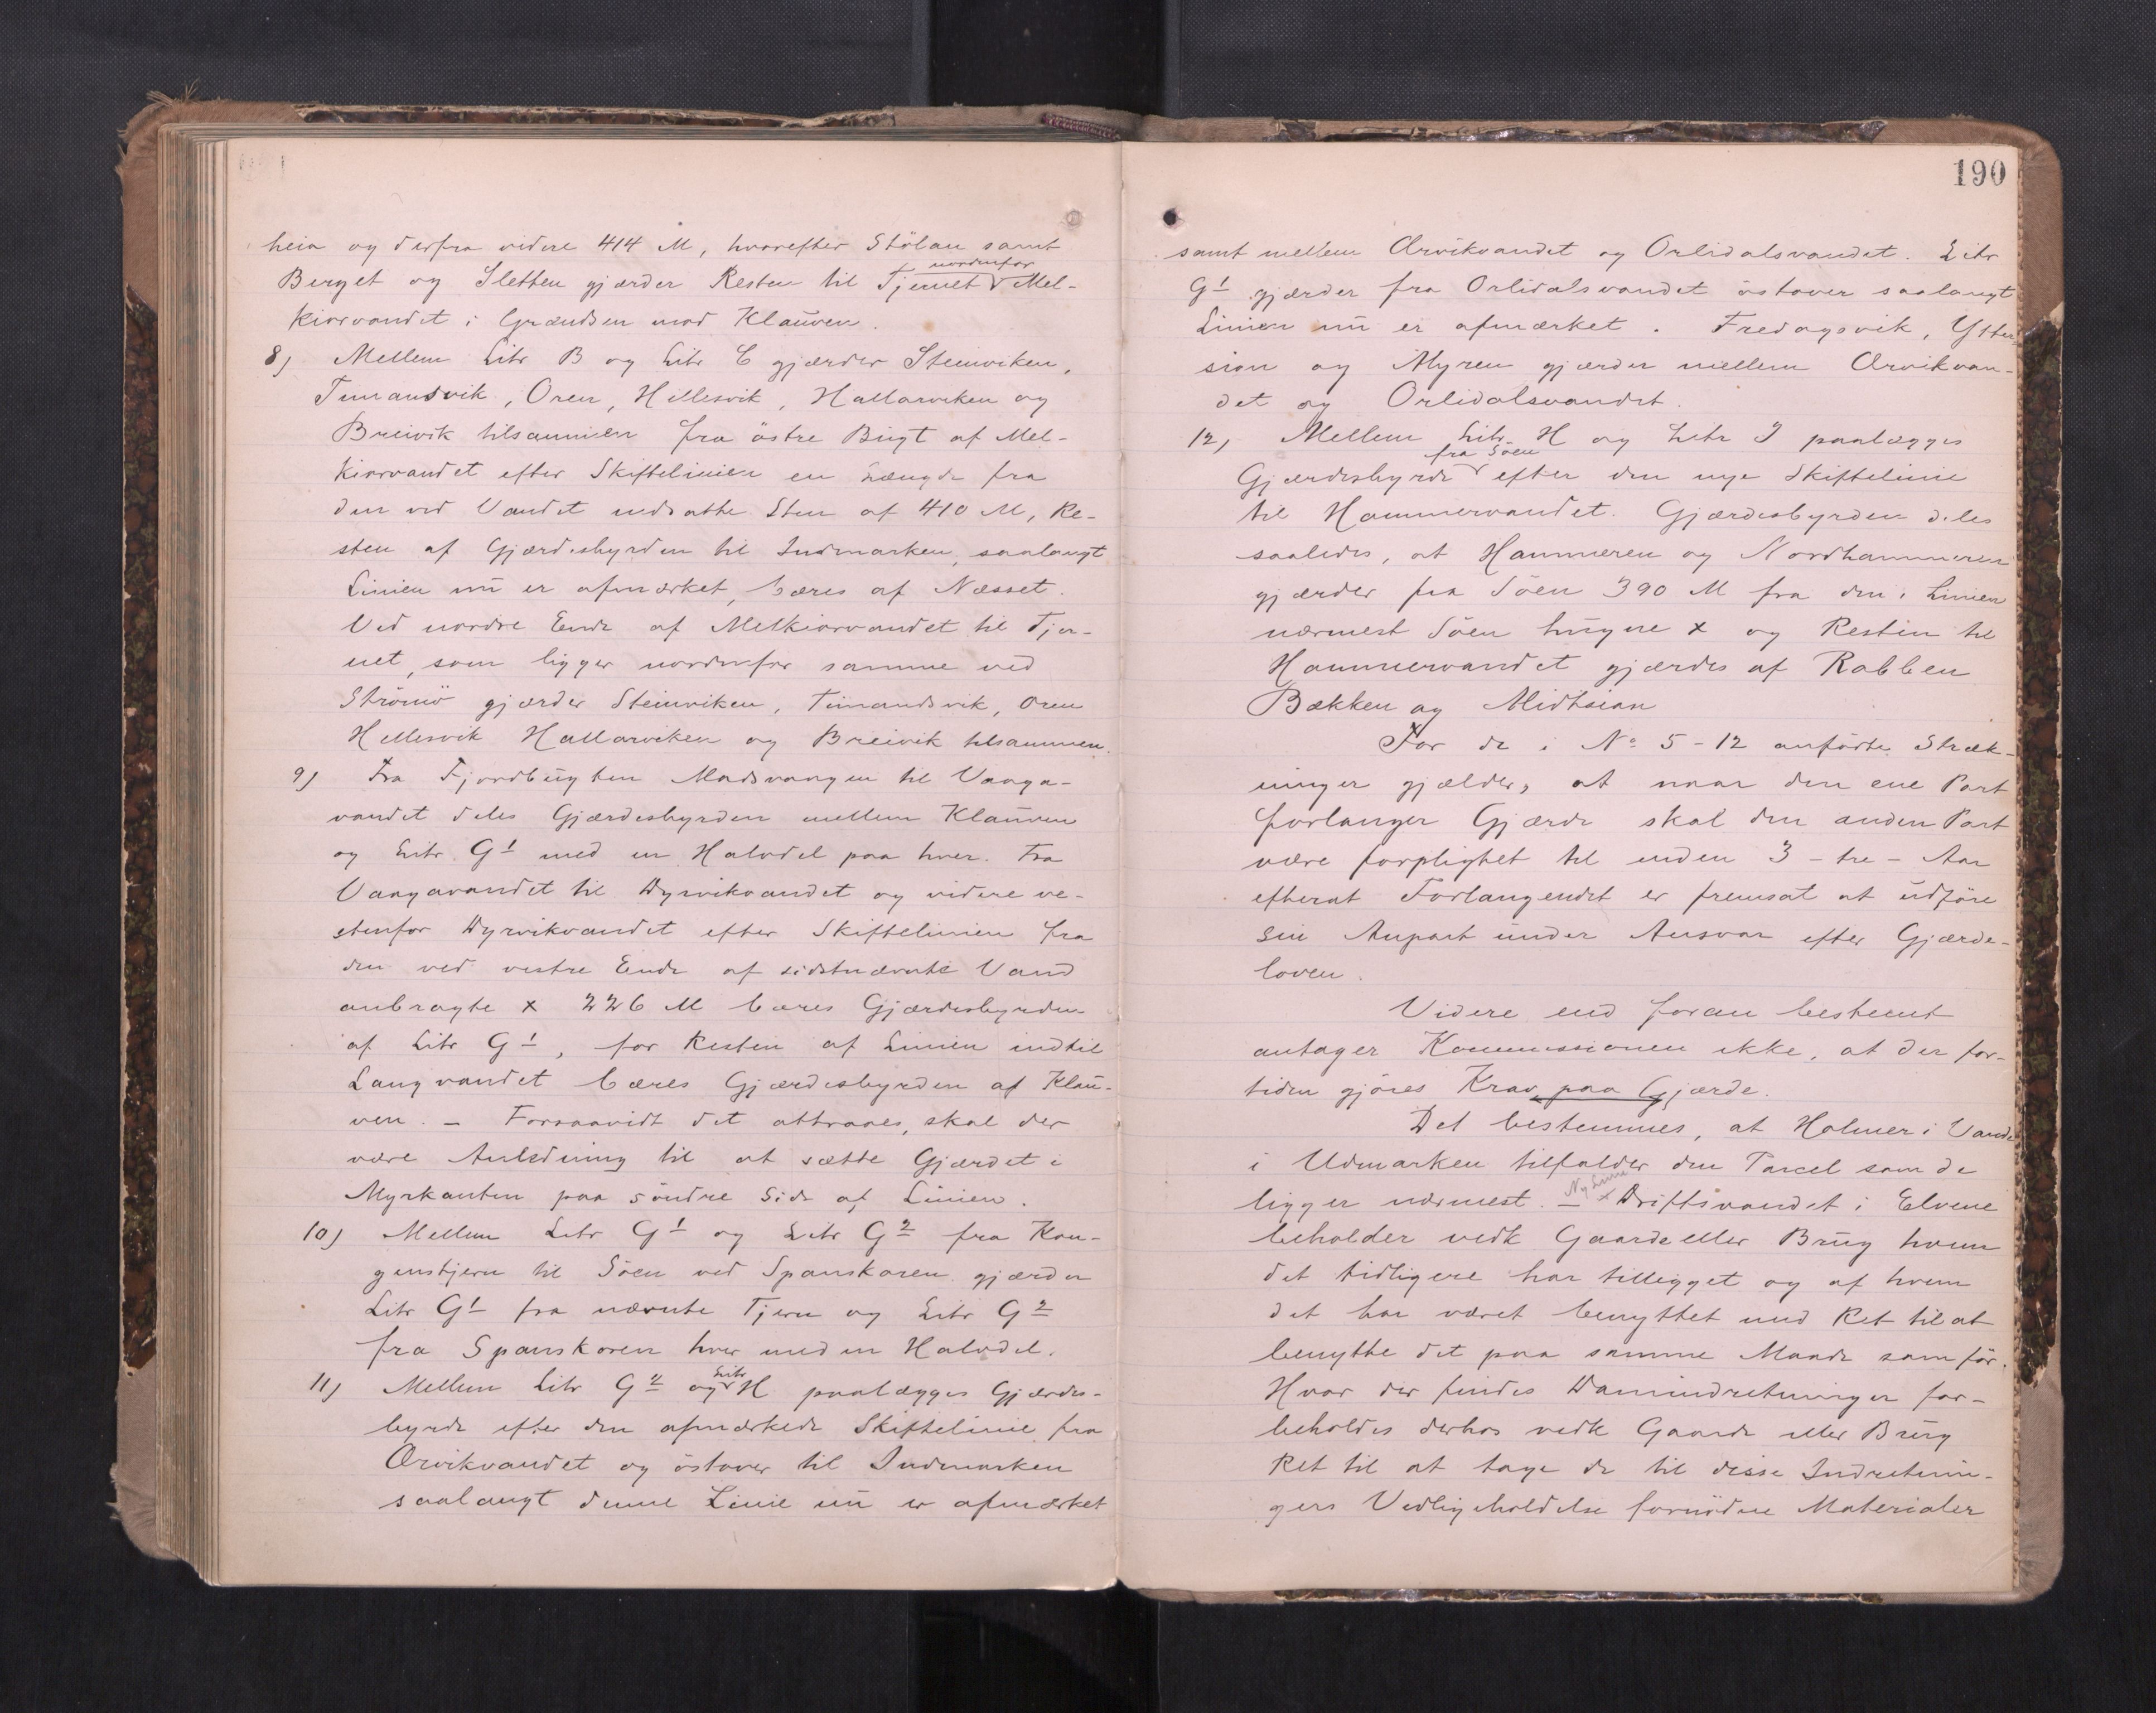 heia og derfra videre 414 M, hvorefter Stölan samt
Berget og Sletten gjærder Resten til Tjernet nordenfor Mel-
kiorvandet i Grændsen mod Klauven.
8) Mellem Litr B og Litr C gjærder Steinviken,
Timansvik, Oren, Hellesvik, Hallarviken og
Breivik tilsammen fra östre Bugt af Mel-
kiorvandet efter Skiftelinien en Længde fra
den ved Vandet nedsatte Sten af 410 M, Re-
sten af Gjærdesbyrden til Indmarken, saalangt
Linien nu er afmærket, bæres af Næsset.
Ved nordre Ende af Melkiorvandet til Tjer-
net, som ligger nordenfor samme ved
Strömö gjærder Steinviken, Timandsvik, Oren
Hellesvik Hallarviken og Breivik tilsammen.
9) Fra Fjordbugten Madsvaagen til Vaaga-
vandet deles Gjærdesbyrden mellem Klauven
og Litr. G1 med en Halvdel paa hver. Fra
Vaagavandet til Dyrvikvandet og videre ve-
stenfor Dyrvikvandet efter Skiftelinien fra
den ved vestre Ende af sidstnævnte Vand
anbragte x 226 M bæres Gjærdesbyrden
af Litr G1, for Resten af Linien indtil
Langvandet bæres Gjærdesbyrden af Klau-
ven. – Forsaavidt det attraaes, skal der
være Anledning til at sætte Gjærdet i
Myrkanten paa söndre Side af Linien.
10) Mellem Litr G1 og Litr G2 fra Kon-
genstjern til Söen ved Spanskoren gjærder
Litr G1 fra nævnte Tjern og Litr G2
fra Spanskoren hver med en Halvdel.
11) Mellem Litr G2 og Litr H paalægges Gjærdes-
byrde efter den afmærkede Skiftelinie fra
Orvikvandet og östover til Indmarken
saalangt denne Linie nu er afmærket
190
samt mellem Orvikvandet og Orlidalsvandet. Litr
G1 gjærder fra Orlidalsvandet östover saalangt
Linien nu er afmærket. Fredagsvik, Ytter-
sian og Myren gjærder mellem Orvikvan-
det og Orlidalsvandet.
12) Mellem Litr H og Litr I paalægges
Gjærdesbyrde fra Söen efter den nye Skiftelinie
til Hammervandet. Gjærdesbyrden deles
saaledes, at Hammeren og Nordhammeren
gjærder fra Söen 390 M fra den i Linien
nærmest Söen hugne x og Resten til
Hammervandet gjærdes af Rabben
Bækken og Midtsian
For de i No 5-12 anförte Stræk-
ninger gjælder, at naar den ene Part
forlanger Gjærde skal den anden Part
være forpligtet til inden 3 - tre - Aar
efterat Forlangendet er fremsat at udföre
sin Anpart under Ansvar efter Gjærde-
loven.
Videre end foran bestemt
antager Kommissionen ikke, at der for-
tiden gjöres Krav paa Gjærde.
Det bestemmes, at Holmer i Vande
i Udmarken tilfalder den Parcel som de
ligger nærmest. – Ny Linie x Driftsvandet i Elvene
beholder vedk Gaarde eller Brug hvem
det tidligere har tilligget og af hvem
det har været benyttet med Ret til at
benytte det paa samme Maade som för.
Hvor der findes Damindretninger for-
beholdes derhos vedk Gaarde eller Brug
Ret til at tage de til disse Indretnin-
gers Vedligeholdelse fornödne Materialer